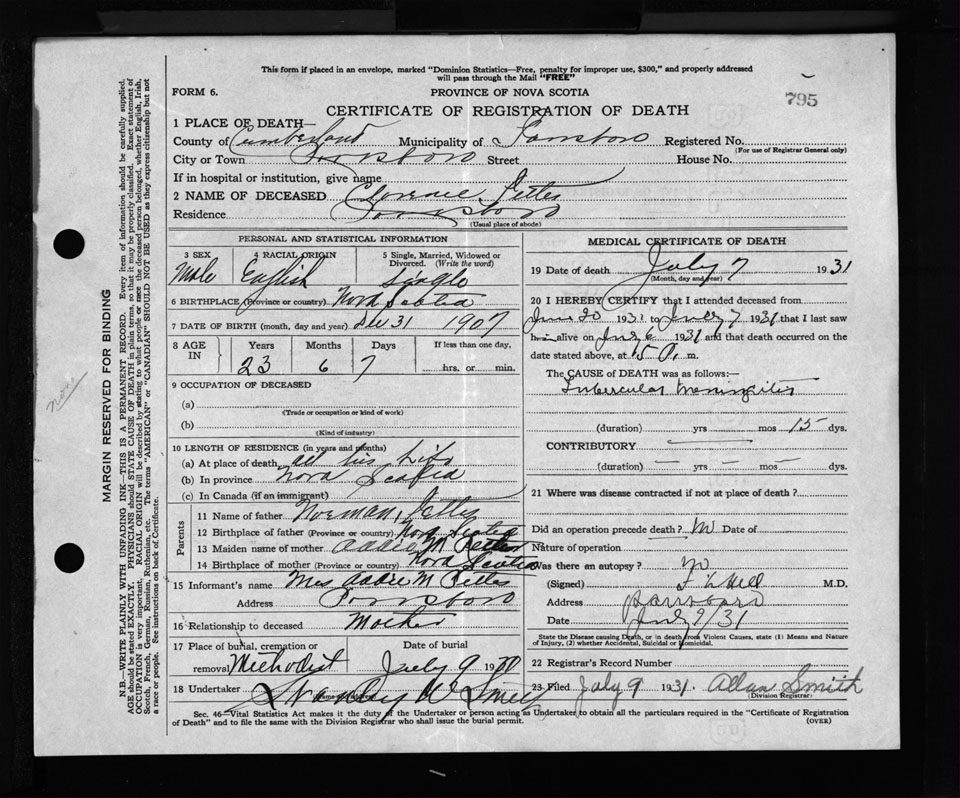 This form if placed in an envelope, marked "Dominion Statistics—Free, penalty for improper use, $300," and properly addressed
will pass through the Mail "FREE"
FORM 6. PROVINCE OF NOVA SCOTIA
795
CERTIFICATE OF REGISTRATION OF DEATH
1 PLACE OF DEATH—
County of Cumberland Municipality of Parrsboro Registered No.
(For use of Registrar General only)
City or Town Parrsboro Street House No.
If in hospital or institution, give name
2 NAME OF DECEASED
Residence Parrsboro
(Usual place of abode)
PERSONAL AND STATISTICAL INFORMATION
3 SEX 4 RACIAL ORIGIN 5 Single, Married, Widowed or Divorced. (Write the word)
Male English Single
6 BIRTHPLACE (Province or country) Nova Scotia
7 DATE OF BIRTH (month, day and year) Dec 31 1907
8 AGE IN Years Months Days If less than one day,
23 6 7 hrs. or min.
9 OCCUPATION OF DECEASED
(a)
(Trade or occupation or kind of work)
(b)
(Kind of industry)
10 LENGTH OF RESIDENCE (in years and months)
(a) At place of death all his Life
(b) In province Nova Scotia
(c) In Canada (if an immigrant)
Parents
11 Name of father Norman
12 Birthplace of father (Province or country) Nova Scotia
13 Maiden name of mother Addie M
14 Birthplace of mother (Province or country) Nova Scotia
15 Informant's name Mrs Addie M
Address Parrsboro
16 Relationship to deceased Mother
17 Place of burial, cremation or removal Methodist Date of burial July 9 19
18 Undertaker
MEDICAL CERTIFICATE OF DEATH
19 Date of death July 7 1931
(Month, day and year)
20 I HEREBY CERTIFY that I attended deceased from
June 20 1931 to July 7 1931 that I last saw
h alive on July 6 1931 and that death occurred on the
date stated above, at m.
The CAUSE of DEATH was as follows:—
Tubercular Meningitis
(duration) yrs mos 15 dys.
CONTRIBUTORY
(duration) — yrs — mos — dys.
21 Where was disease contracted if not at place of death?
Did an operation precede death? No Date of
Nature of operation
Was there an autopsy? No
(Signed) Hill M.D.
Address Parrsboro
Date July 9/31
State the Disease causing Death, or in death from Violent Causes, state (1) Means and Nature
of Injury, (2) whether Accidental, Suicidal or Homicidal.
22 Registrar's Record Number
23 Filed July 9 1931. Allan Smith
Division Registrar
Sec. 46—Vital Statistics Act makes it the duty of the Undertaker or person acting as Undertaker to obtain all the particulars required in the "Certificate of Registration
of Death" and to file the same with the Division Registrar who shall issue the burial permit. (OVER)
MARGIN RESERVED FOR BINDING
N.B.—WRITE PLAINLY WITH UNFADING INK—THIS IS A PERMANENT RECORD. Every item of information should be carefully supplied.
AGE should be stated EXACTLY. PHYSICIANS should STATE CAUSE OF DEATH in plain terms, so that it may be properly classified. Exact statement of
OCCUPATION is very important. RACIAL ORIGIN will be described by stating to what people or race the deceased person belonged, whether English, Irish,
Scotch, French, German, Russian, Ruthenian, etc. The terms "AMERICAN" or "CANADIAN" SHOULD NOT BE USED as they express citizenship but not
a race or people. See instructions on back of Certificate.